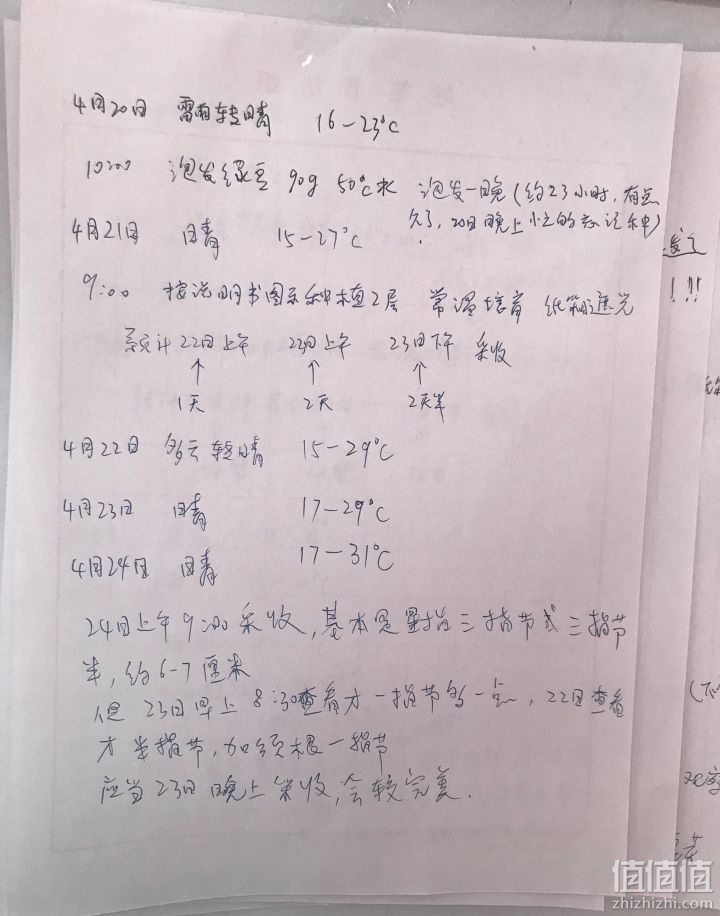 4月20日 雷雨转晴 16-23℃
10:00 泡发绿豆 90g 50℃水 泡发一晚(约23小时,有点
久了,20日晚上忘记种)
4月21日 晴 15-27℃
9:00 按说明书图示种植2层 常温培育 纸箱遮光
预计22日上午 23日上午 23日下午 采收
↑ ↑ ↑
1天 2天 2天半
4月22日 多云转晴 15-29℃
4月23日 晴 17-29℃
4月24日 晴 17-31℃
24日上午9:00采收,基本是量指三指节或三指节
半,约6-7厘米
但23日早上8:30查看才一指节多一点,22日查看
才半指节,加须根一指节
应当23日晚上采收,会较完美.
发了
!!!
(不
值值值
zhizhizhi.com